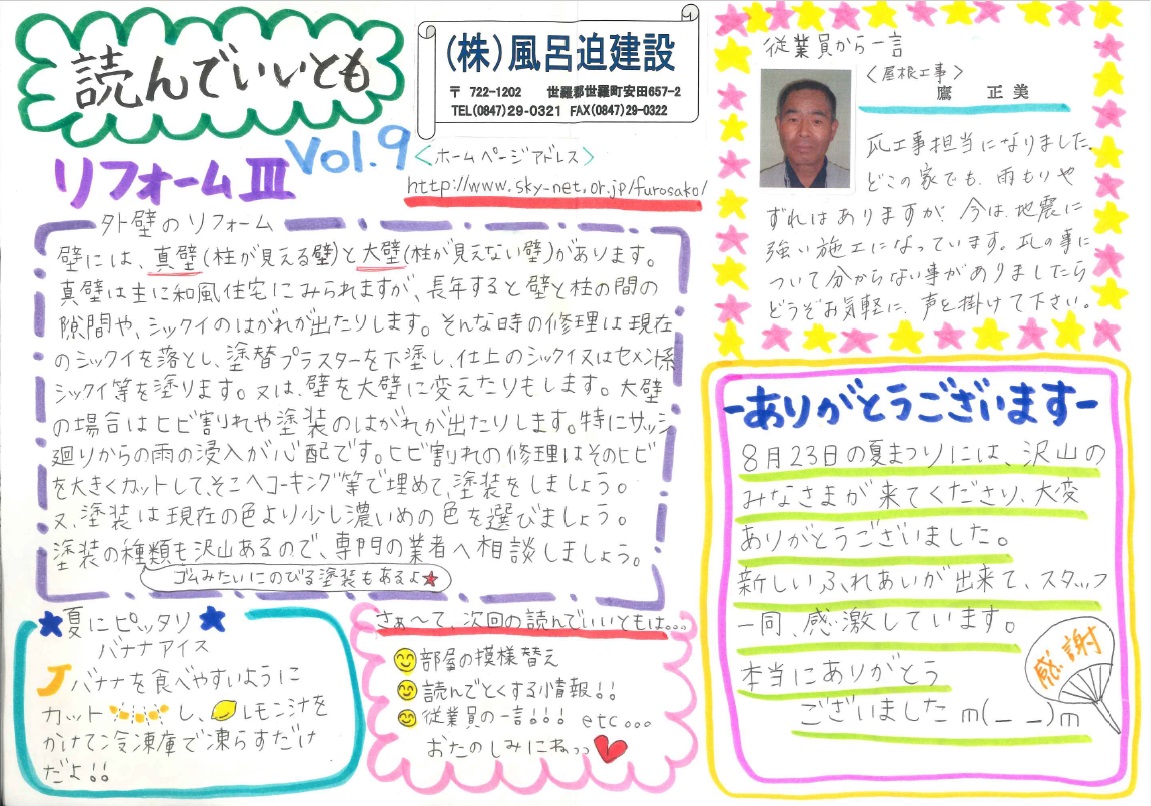 読んでいいとも
Vol.9
リフォームⅢ
(株)風呂迫建設
〒 722-1202 世羅郡世羅町安田657-2
TEL(0847)29-0321 FAX(0847)29-0322
<ホームページアドレス>
http://www.sky-net.or.jp/furosako/
外壁のリフォーム
壁には、真壁(柱が見える壁)と大壁(柱が見えない壁)があります。
真壁は主に和風住宅にみられますが、長年すると壁と柱の間の
隙間や、シックイのはがれが出たりします。そんな時の修理は現在
のシックイを落とし、塗替プラスターを下塗し、仕上のシックイ又はセメント系
シックイ等を塗ります。又は、壁を大壁に変えたりもします。大壁
の場合はヒビ割れや塗装のはがれが出たりします。特にサッシ
廻りからの雨の浸入が心配です。ヒビ割れの修理はそのヒビ
を大きくカットして、そこへコーキング等で埋めて、塗装をしましょう。
又、塗装は現在の色より少し濃いめの色を選びましょう。
塗装の種類も沢山あるので、専門の業者へ相談しましょう。
ゴムみたいにのびる塗装もあるよ★
★夏にピッタリ★
バナナアイス
バナナを食べやすいように
カットし、レモン汁を
かけて冷凍庫で凍らすだけ
だよ!!
さぁ〜て、次回の読んでいいともは...
部屋の模様替え
読んでとくする小情報!!
従業員の一言!!! etc...
おたのしみにねっっ
従業員から一言
<屋根工事>
鷹 正美
瓦工事担当になりました。
どこの家でも、雨もりや
ずれはありますが、今は、地震に
強い施工になっています。瓦の事に
ついて分からない事がありましたら
どうぞお気軽に、声を掛けて下さい。
-ありがとうございます-
8月23日の夏まつりには、沢山の
みなさまが来てくださり、大変
ありがとうございました。
新しいふれあいが出来て、スタッフ
一同、感激しています。
本当にありがとう
ございました m(_ _)m
感謝